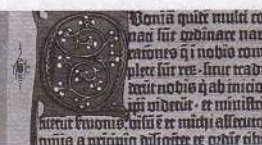 Quoniā quidē multi co
nati sūt ordinare nar
rationes q̄ i nobis com
plete sūt reꝝ. sicut trad
derūt nobis q̄ ab inicio
ipi viderūt · et ministri
fuerūt sermonis, visū ē et michi assecuto
omnia a principio diligēter ex ordīe tibi